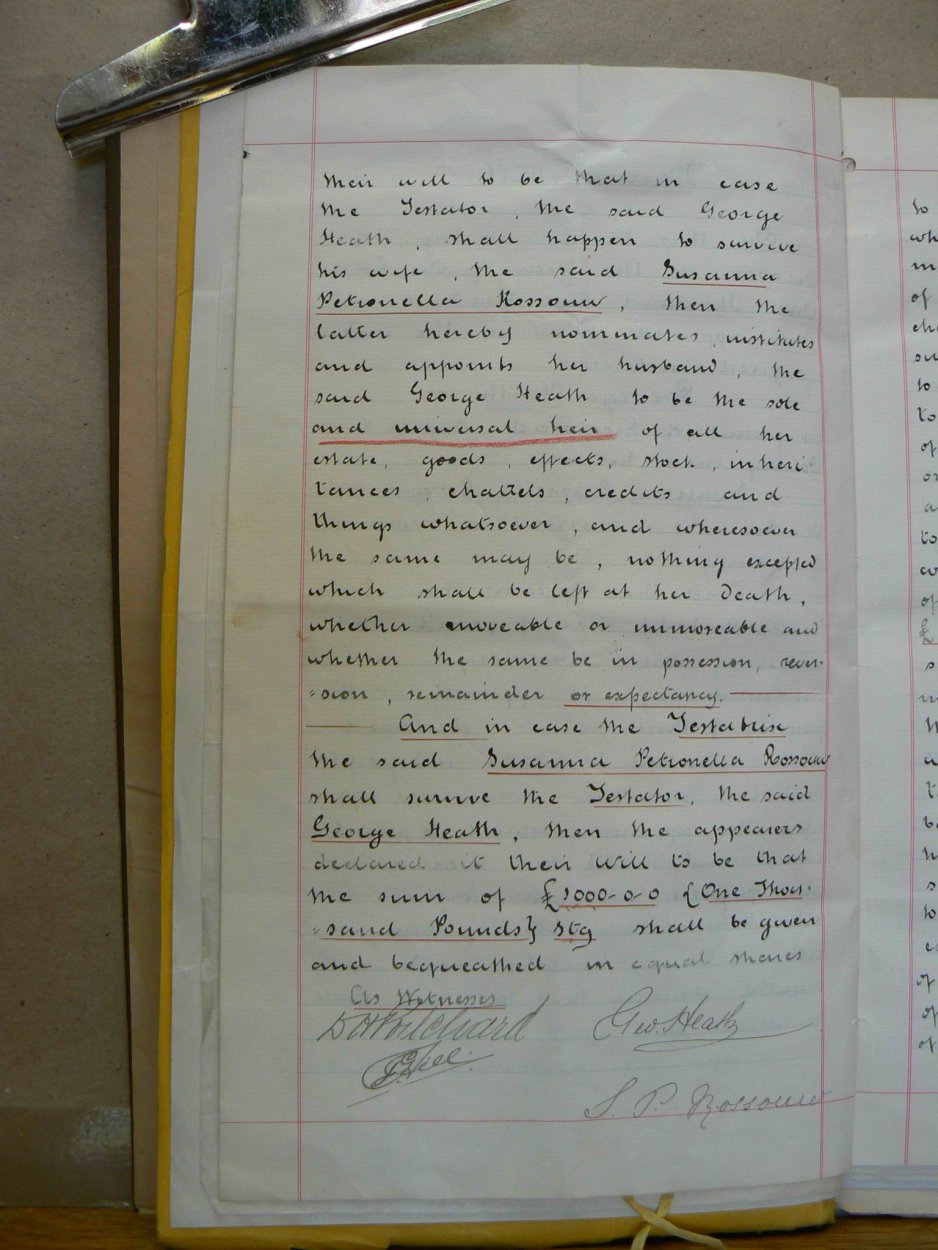 their will to be that in case
the Testator, the said George
Heath, shall happen to survive
his wife, the said Susanna
Petronella Rossouw, then the
latter hereby nominates, institutes
and appoints her husband, the
said George Heath to be the sole
and universal heir of all her
estate, goods, effects, stock, inheri
tances, chattels, credits and
things whatsoever, and wheresoever
the same may be, nothing excepted
which shall be left at her death,
whether moveable or immoveable and
whether the same be in possession, rever-
-sion, remainder or expectancy.
And in case the Testatrix
the said Susanna Petronella Rossouw
shall survive the Testator, the said
George Heath, then the appearers
declared it their Will to be that
the sum of £1000-0-0 {One Thou-
-sand Pounds} Stg shall be given
and bequeathed in equal shares
As Witnesses
Pritchard
Geo. Heath
S. P. Rossouw
to
wh
m
of
ch
su
to
to
of
or
a
to
of
£
s
to
of
of
of